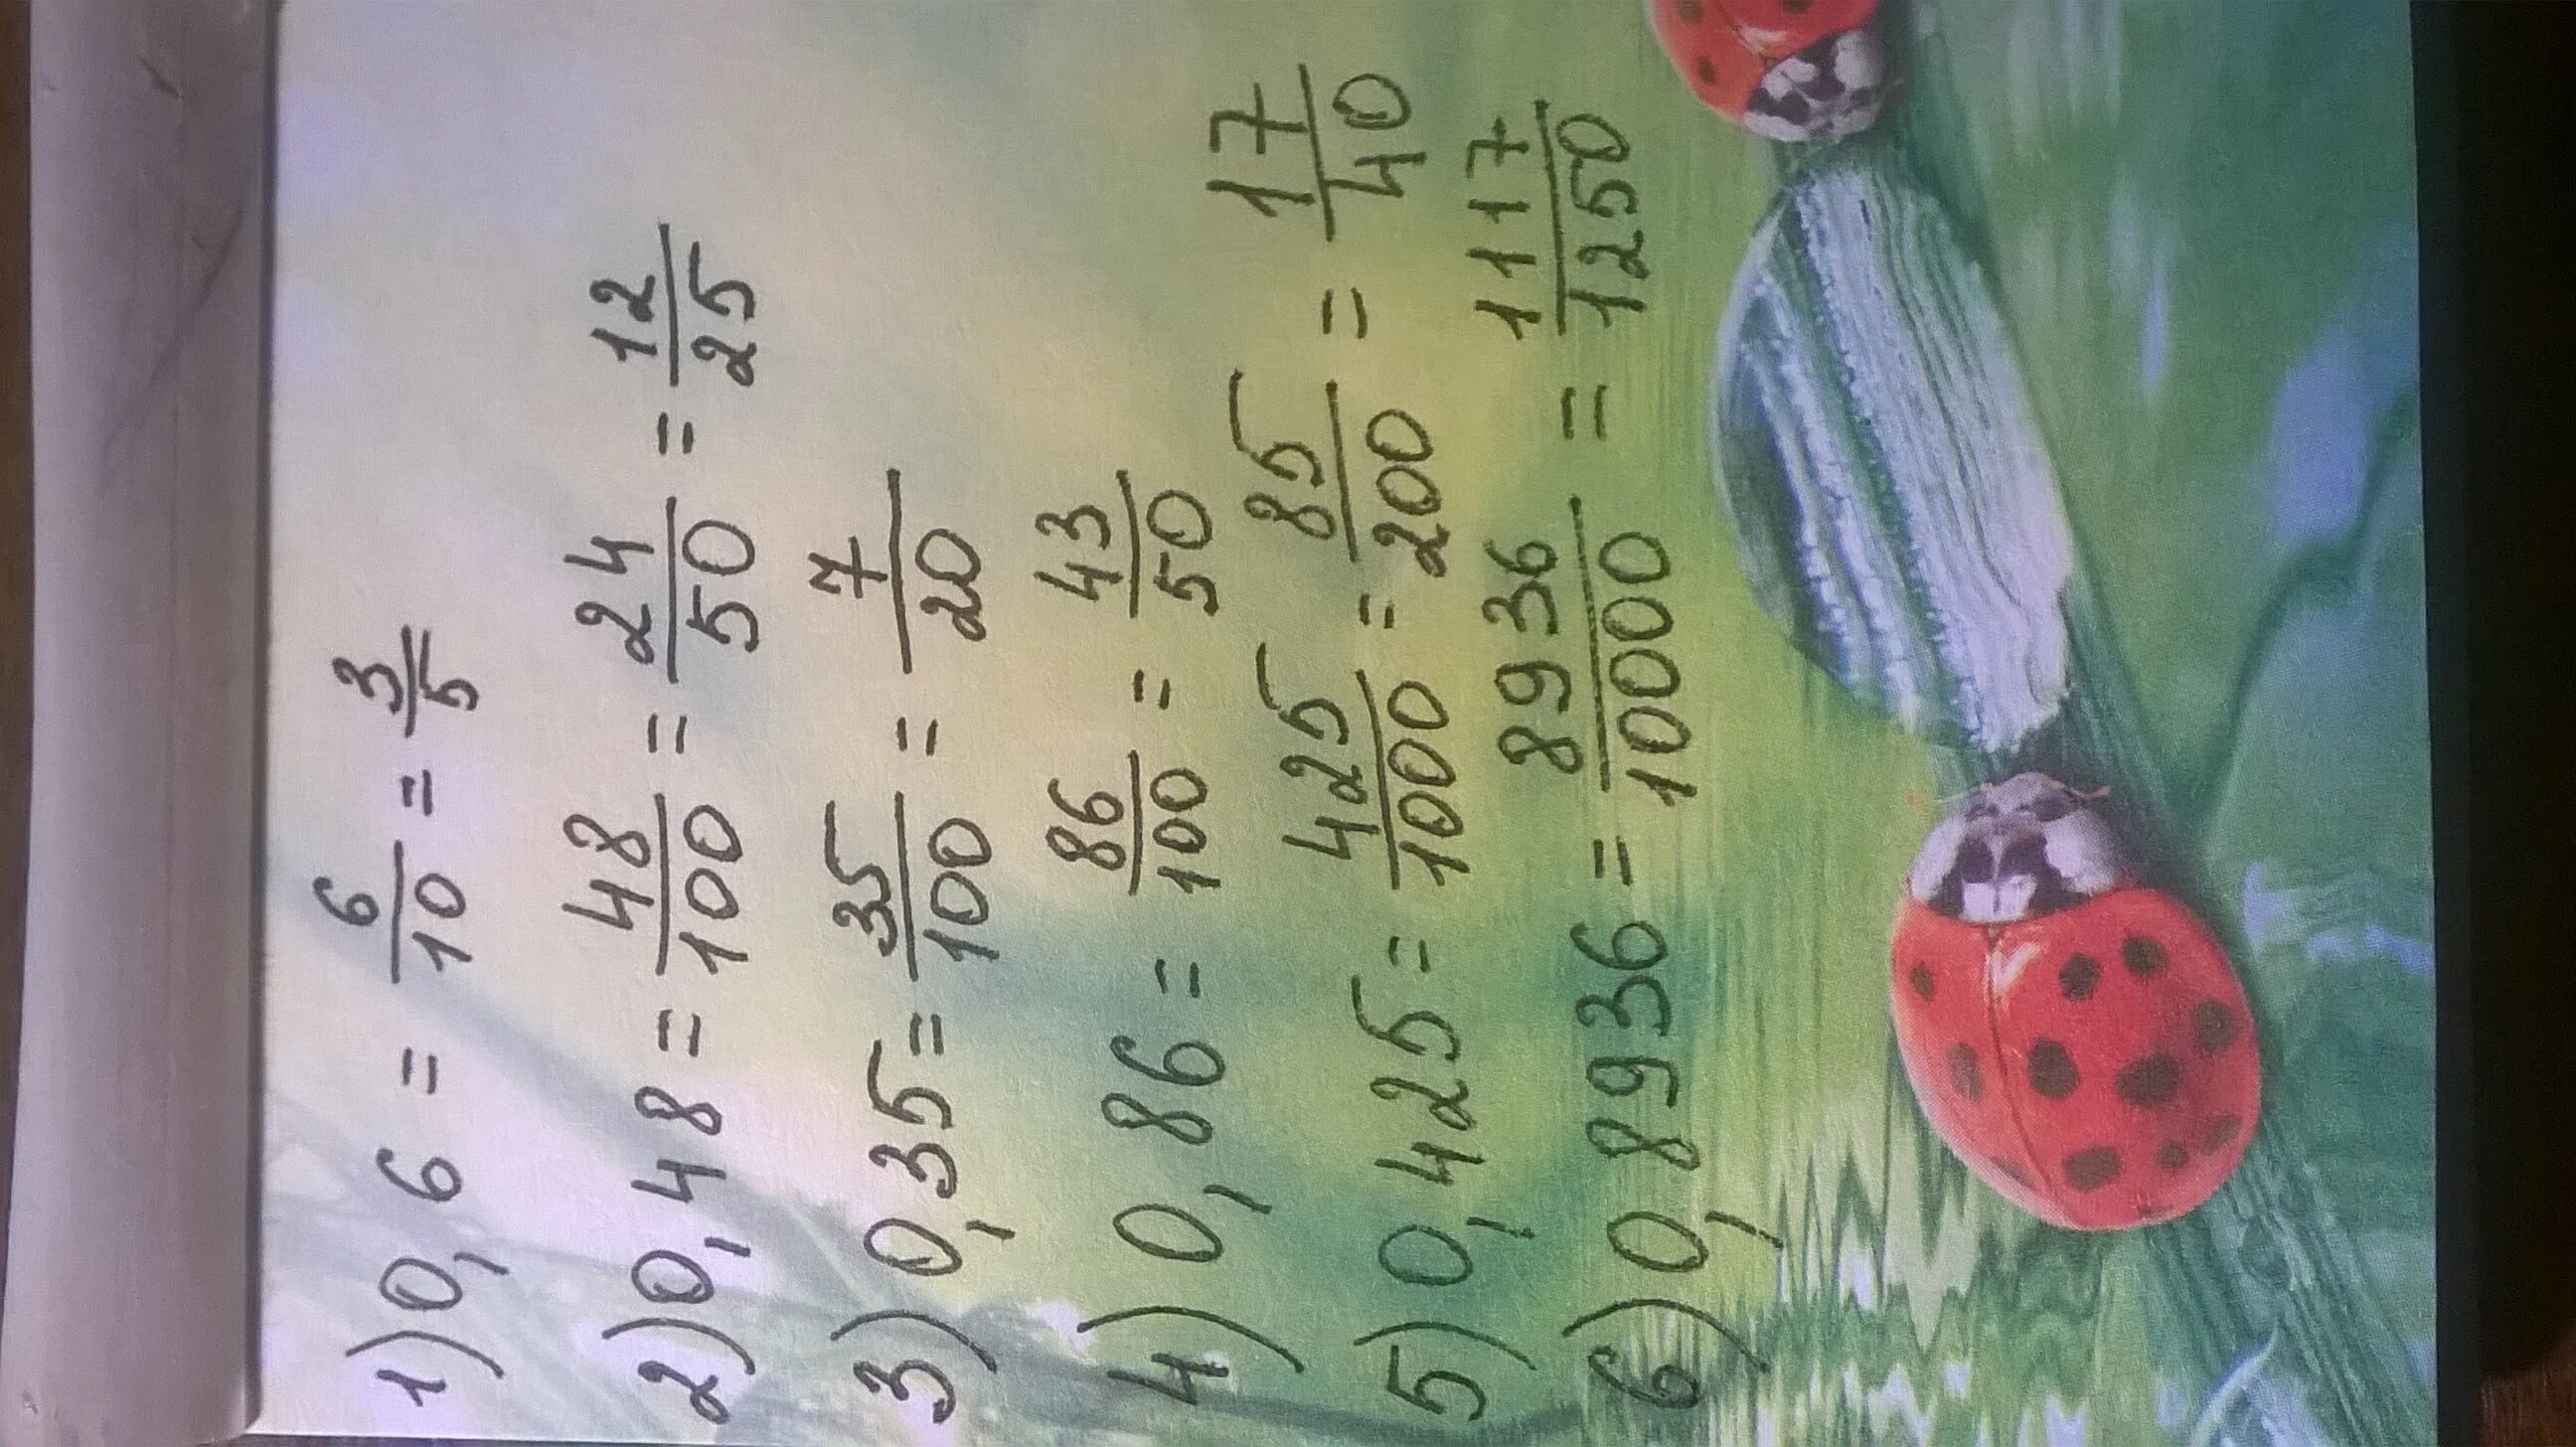 1) 0,6 = 6/10 = 3/5
2) 0,48 = 48/100 = 24/50 = 12/25
3) 0,35 = 35/100 = 7/20
4) 0,86 = 86/100 = 43/50
5) 0,425 = 425/1000 = 85/200 = 17/40
6) 0,8936 = 8936/10000 = 1117/1250